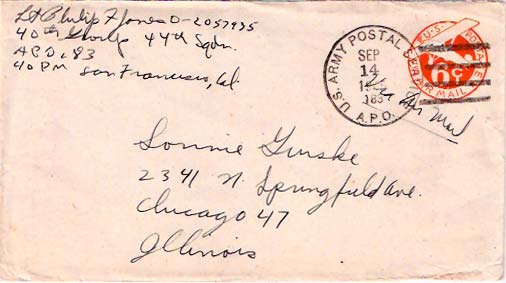 Lt Philip F Jones O-2057935
40th Group 44th Sqdn.
APO 183
℅ PM San Francisco, Cal
U.S. ARMY POSTAL SERV
SEP
14
183
A.P.O.
U.S. POSTAGE
6c
AIR MAIL
Via Air Mail
Lonnie
2341 N. Springfield Ave.
Chicago 47
Illinois